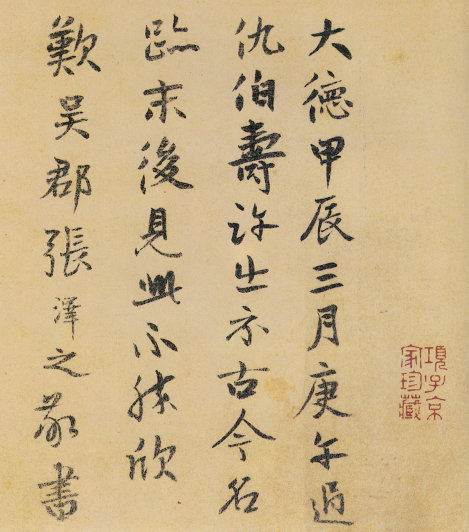 項子京
家珍藏
大德甲辰三月庚午過
仇伯壽許出示古今名
跡末後見此不勝欣
歎吳郡張澤之敬書